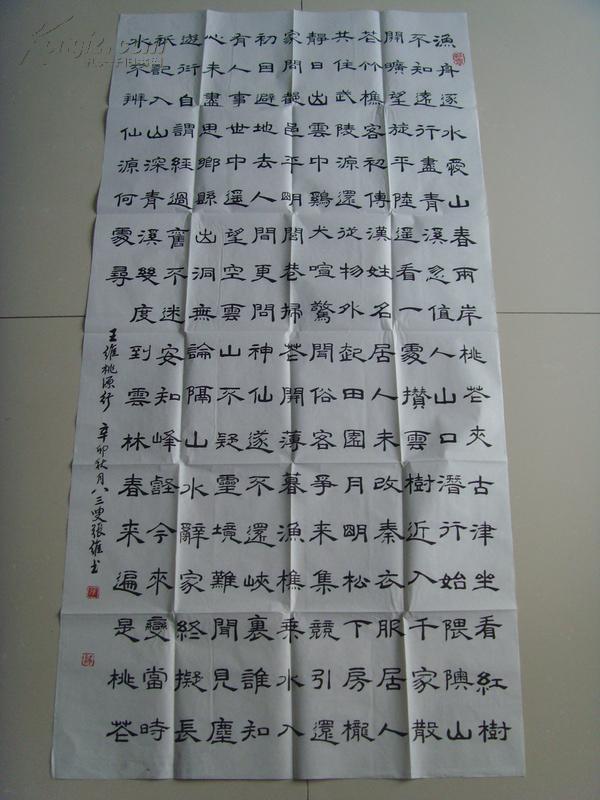 漁舟逐水愛山春兩岸桃花夾古津坐看紅樹
不知遠行盡青溪忽值人山口潛行始隈隩山
開曠望旋平陸遥看一處攢雲樹近入千家散
花竹樵客初傳漢姓名居人未改秦衣服居人
共住武陵源還從物外起田園月明松下房櫳
靜日出雲中鷄犬喧驚聞俗客爭来集競引還
家問都邑平明閭巷掃花開薄暮漁樵乘水入
初因避地去人間更問神仙遂不還峽裏誰知
有人事世中遥望空雲山不疑靈境難聞見塵
心未盡思鄉縣出洞無論隔山水辭家終擬長
遊衍自謂經過舊不迷安知峰壑今来變當時
祇記入山深青溪幾度到雲林春来遍是桃花
水不辨仙源何處尋
王維桃源行 辛卯秋月八三叟張維书